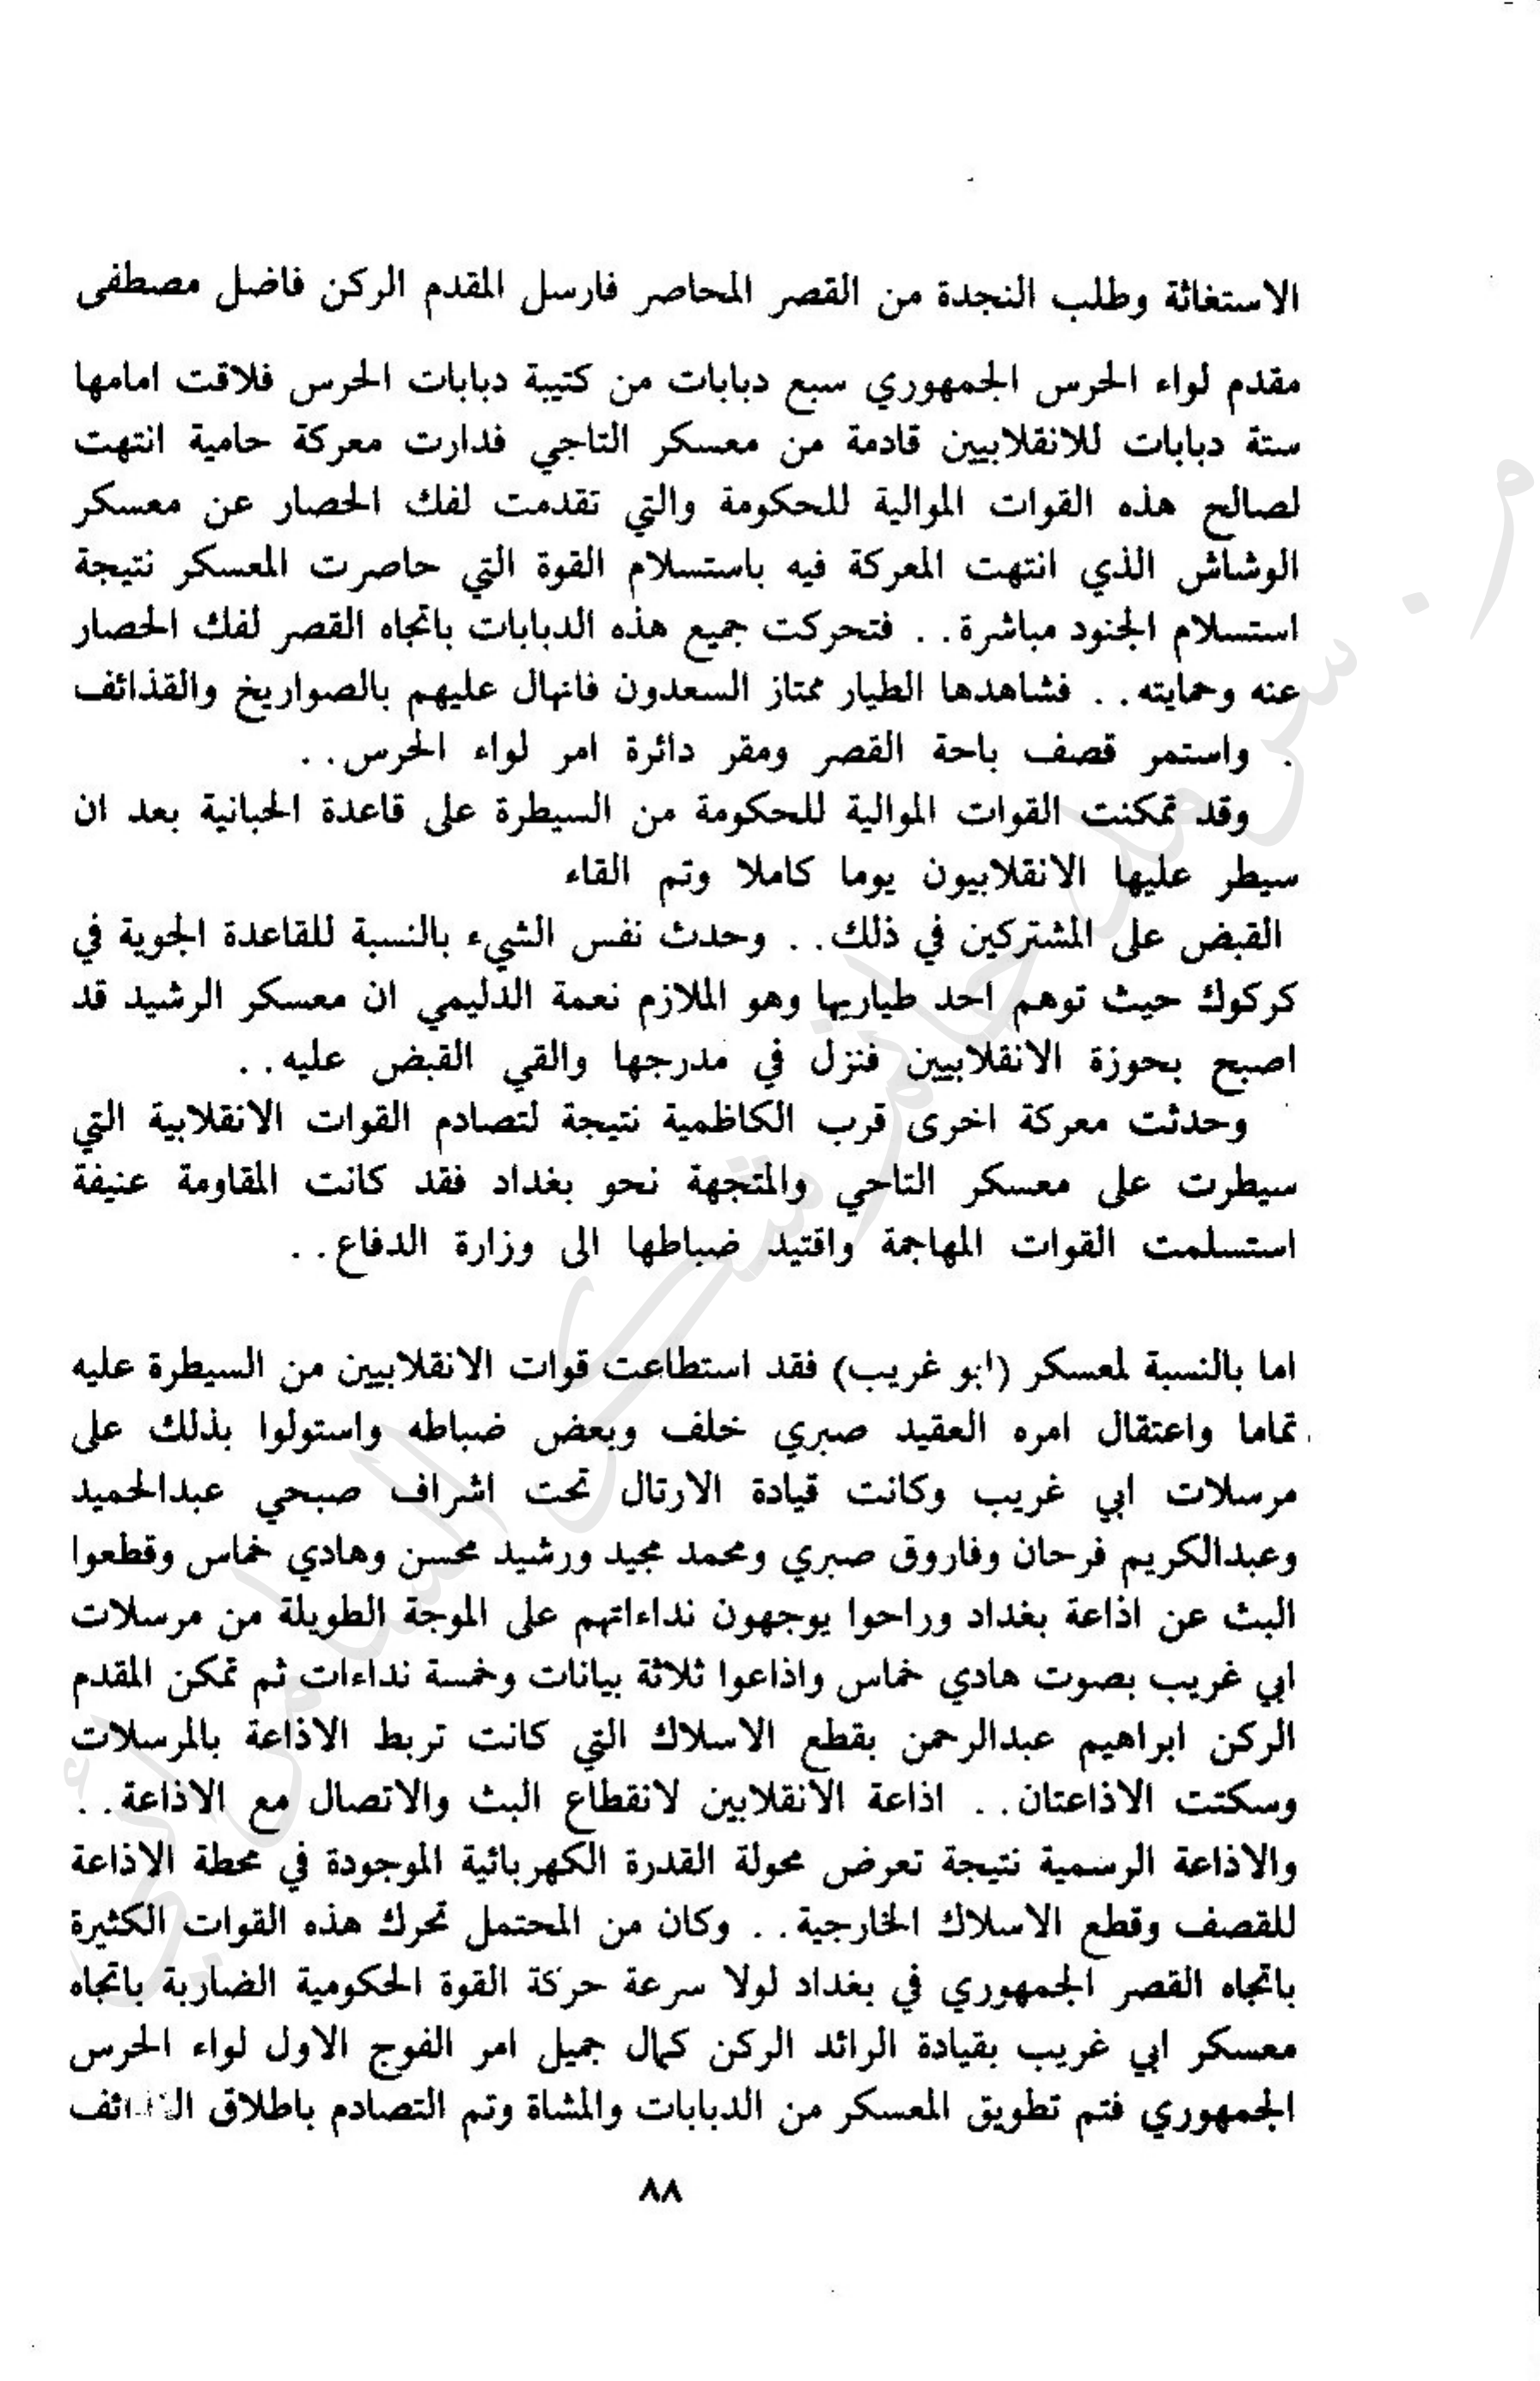 الاستغاثة وطلب النجدة من القصر المحاصر فارسل المقدم الركن فاضل مصطفى
مقدم لواء الحرس الجمهوري سبع دبابات من كتيبة دبابات الحرس فلاقت امامها
ستة دبابات للانقلابيين قادمة من معسكر التاجي فدارت معركة حامية انتهت
لصالح هذه القوات الموالية للحكومة والتي تقدمت لفك الحصار عن معسكر
الوشاش الذي انتهت المعركة فيه باستسلام القوة التي حاصرت المعسكر نتيجة
استسلام الجنود مباشرة.. فتحركت جميع هذه الدبابات باتجاه القصر لفك الحصار
عنه وحمايته.. فشاهدها الطيار ممتاز السعدون فانهال عليهم بالصواريخ والقذائف
. واستمر قصف باحة القصر ومقر دائرة امر لواء الحرس..
وقد تمكنت القوات الموالية للحكومة من السيطرة على قاعدة الحبانية بعد ان
سيطر عليها الانقلابيون يوما كاملا وتم القاء
القبض على المشتركين في ذلك.. وحدث نفس الشيء بالنسبة للقاعدة الجوية في
كركوك حيث توهم احد طياريها وهو الملازم نعمة الدليمي ان معسكر الرشيد قد
اصبح بحوزة الانقلابيين فنزل في مدرجها والقي القبض عليه..
وحدثت معركة اخرى قرب الكاظمية نتيجة لتصادم القوات الانقلابية التي
سيطرت على معسكر التاحي والمتجهة نحو بغداد فقد كانت المقاومة عنيفة
استسلمت القوات المهاجمة واقتيد ضباطها الى وزارة الدفاع..
اما بالنسبة لمعسكر (ابو غريب) فقد استطاعت قوات الانقلابيين من السيطرة عليه
تماما واعتقال امره العقيد صبري خلف وبعض ضباطه واستولوا بذلك على
مرسلات ابي غريب وكانت قيادة الارتال تحت اشراف صبحي عبدالحميد
وعبدالكريم فرحان وفاروق صبري ومحمد مجيد ورشيد محسن وهادي خماس وقطعوا
البث عن اذاعة بغداد وراحوا يوجهون نداءاتهم على الموجة الطويلة من مرسلات
ابي غريب بصوت هادي خماس واذاعوا ثلاثة بيانات وخمسة نداءات ثم تمكن المقدم
الركن ابراهيم عبدالرحمن بقطع الاسلاك التي كانت تربط الاذاعة بالمرسلات
وسكتت الاذاعتان.. اذاعة الانقلابين لانقطاع البث والاتصال مع الاذاعة..
والاذاعة الرسمية نتيجة تعرض محولة القدرة الكهربائية الموجودة في محطة الاذاعة
للقصف وقطع الاسلاك الخارجية.. وكان من المحتمل تحرك هذه القوات الكثيرة
باتجاه القصر الجمهوري في بغداد لولا سرعة حركة القوة الحكومية الضاربة باتجاه
معسكر ابي غريب بقيادة الرائد الركن كمال جميل امر الفوج الاول لواء الحرس
الجمهوري فتم تطويق المعسكر من الدبابات والمشاة وتم التصادم باطلاق
٨٨